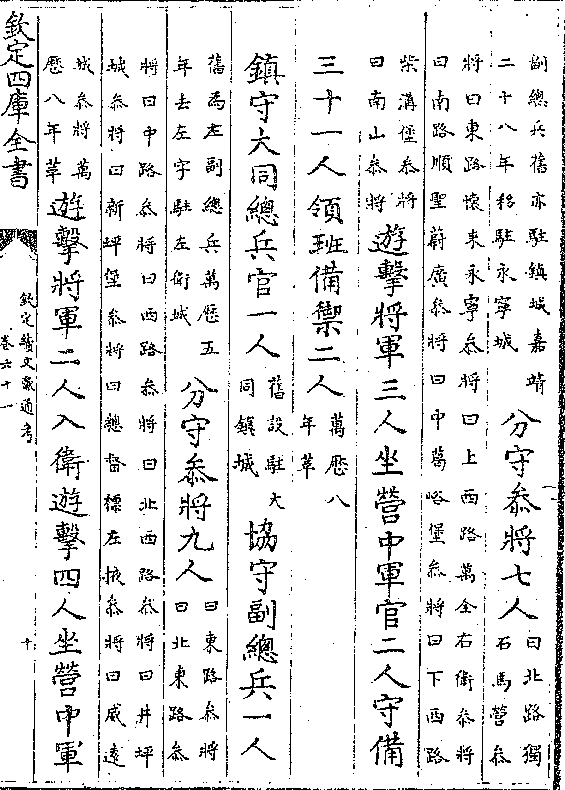 副總兵舊亦駐鎮城嘉靖
二十八年移駐永寧城
分守叅將七人
曰北路獨
石馬營叅
將曰東路懷来永寧叅將曰上西路萬全右衛叅將
曰南路順聖蔚廣叅將曰中葛峪堡叅將曰下西路
柴溝堡叅將
曰南山叅將
遊擊將軍三人坐營中軍官二人守備
三十一人領班備禦二人
萬歷八
年革
鎮守大同總兵官一人
舊設駐大
同鎮城
協守副總兵一人
舊為左副總兵萬歷五
年去左字駐左衛城
分守叅將九人
曰東路叅將
曰北東路叅
將曰中路叅將曰西路叅將曰北西路叅將曰井坪
城叅將曰新坪堡叅將曰總督標左掖叅將曰威遠
城叅將萬
歷八年革
遊擊將軍二人入衛遊擊四人坐營中軍
欽定四庫全書
欽定續文獻通考
卷六十一
十